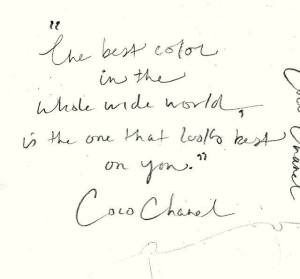 "The best color
in the
whole wide world,
is the one that looks best
on you."
Coco Chanel
Coco Chanel